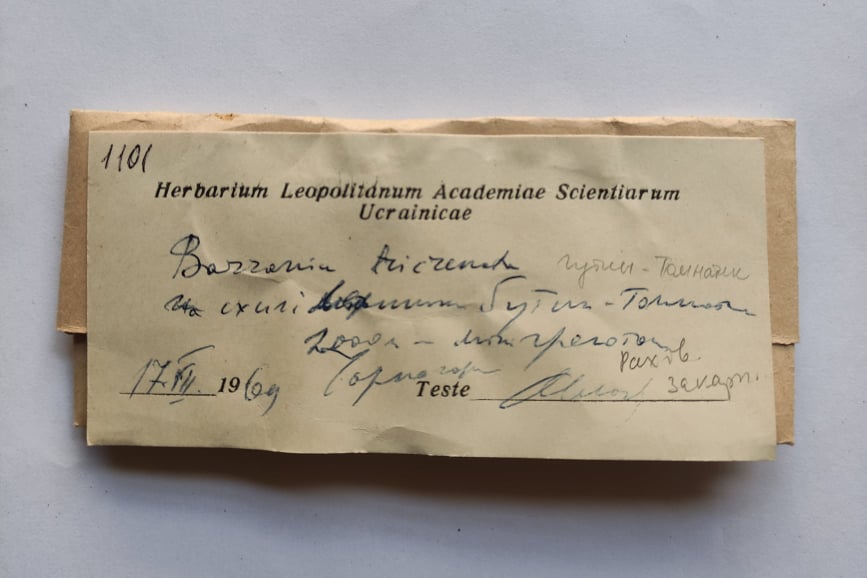 1101
Herbarium Leopolitanum Academiae Scientiarum
Ucrainicae
Bazzania гутин - Томнатик
на схилі вершини Бутин - Томнатик
2000 м - між
17.VII. 1969 Чорногора Teste Рахів.
Закарп.